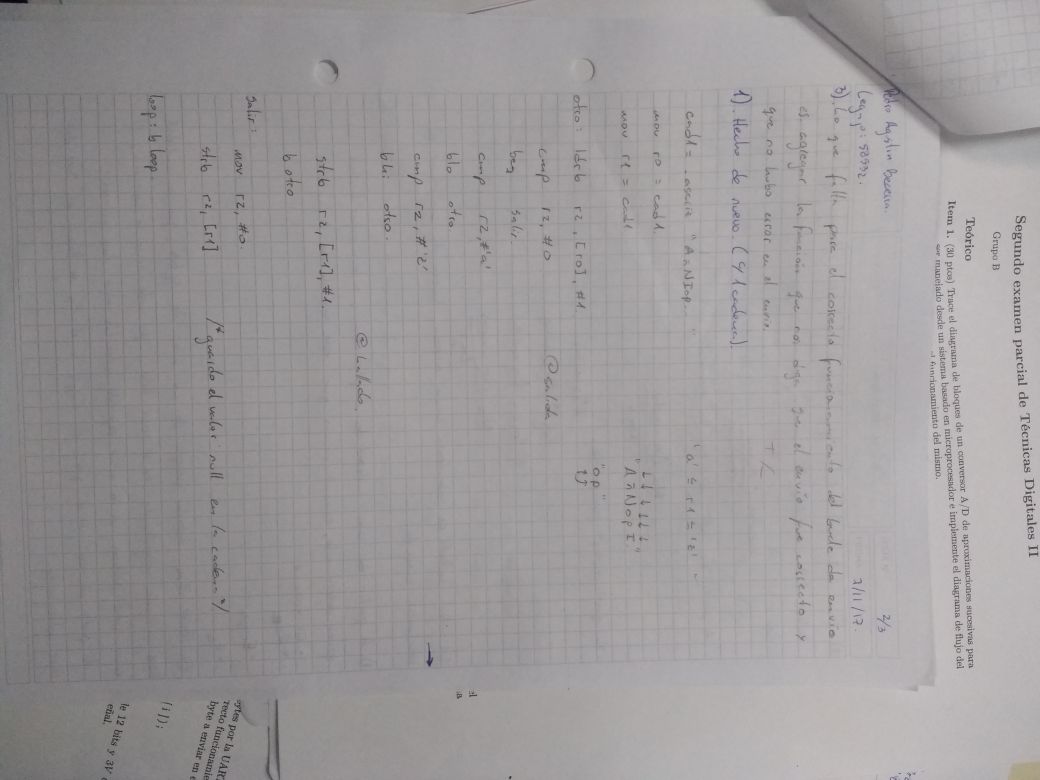 Segundo examen parcial de Técnicas Digitales II
Grupo B
Teórico
Item 1. (30 ptos) Trace el diagrama de bloques de un conversor A/D de aproximaciones sucesivas para
ser manejado desde un sistema basado en microprocesador e implemente el diagrama de flujo del
funcionamiento del mismo.
2/3
Pedro Agustin
Legajo: 7/11/17.
3). Lo que falla para el correcto funcionamiento del bucle de envio
es agregar la función que nos diga que el envio fue correcto y
que no hubo error en el envio.
1). Hecho de nuevo. (4 1 cadena).
cad1 = .asciz "AñNIop. " 'a' ≤ r1 ≤ 'z'
mov r0 = cad1
mov r1 = cad1 "AñNopI."
"op"
otro: ldrb r2, [r0], #1.
cmp r2, #0 @salida
beq salir
cmp r2, #'a'
blo otro
cmp r2, #'z'
bhi otro.
@hallado.
strb r2, [r1], #1.
b otro
salir:
mov r2, #0.
strb r2, [r1] /* guardo el valor null en la cadena */
loop: b loop.
el
rtes por la UAR
recto funcionamie
byte a enviar en e
[i]);
le 12 bits y 3V
eñal.